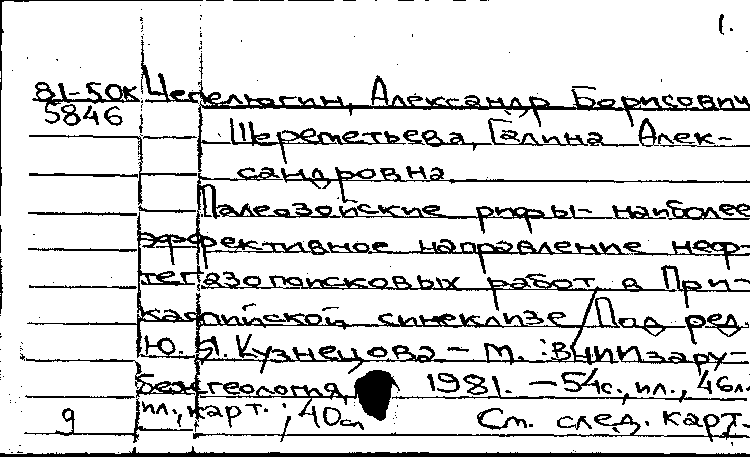 1.
81-50К Чепелюгин, Александр Борисович
5846 Шереметьева, Галина Алек-
сандровна.
Палеозойские рифы- наиболее
эффективное направление неф-
тегазопоисковых работ в При-
каспийской синеклизе / Под ред.
Ю. Я. Кузнецова - М. : ВНИИзару-
бежгеология, 1981. - 54с., ил., 46л.
ил., карт. ; 40см
9 См. след. карт.